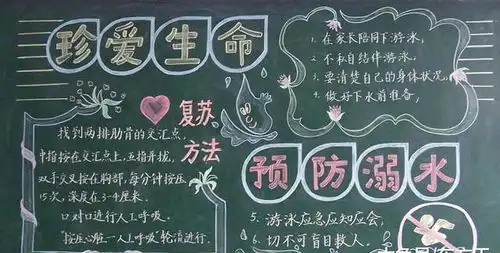 珍爱生命
复苏
方法
找到两排肋骨的交汇点,
中指按在交迄点上,五指并拢,
双手交叉按在胸部,每分钟按压
15次,深度在3-4厘米.
口对口进行人工呼吸.
"按压心脏一人工呼吸"轮流进行.
1. 在家长陪同下游泳,
2. 不私自结伴游泳.
3. 要清楚自己的身体状况,
4. 做好下水前准备,
预防溺水
5. 游泳应急应知应会,
6. 切不可盲目救人.